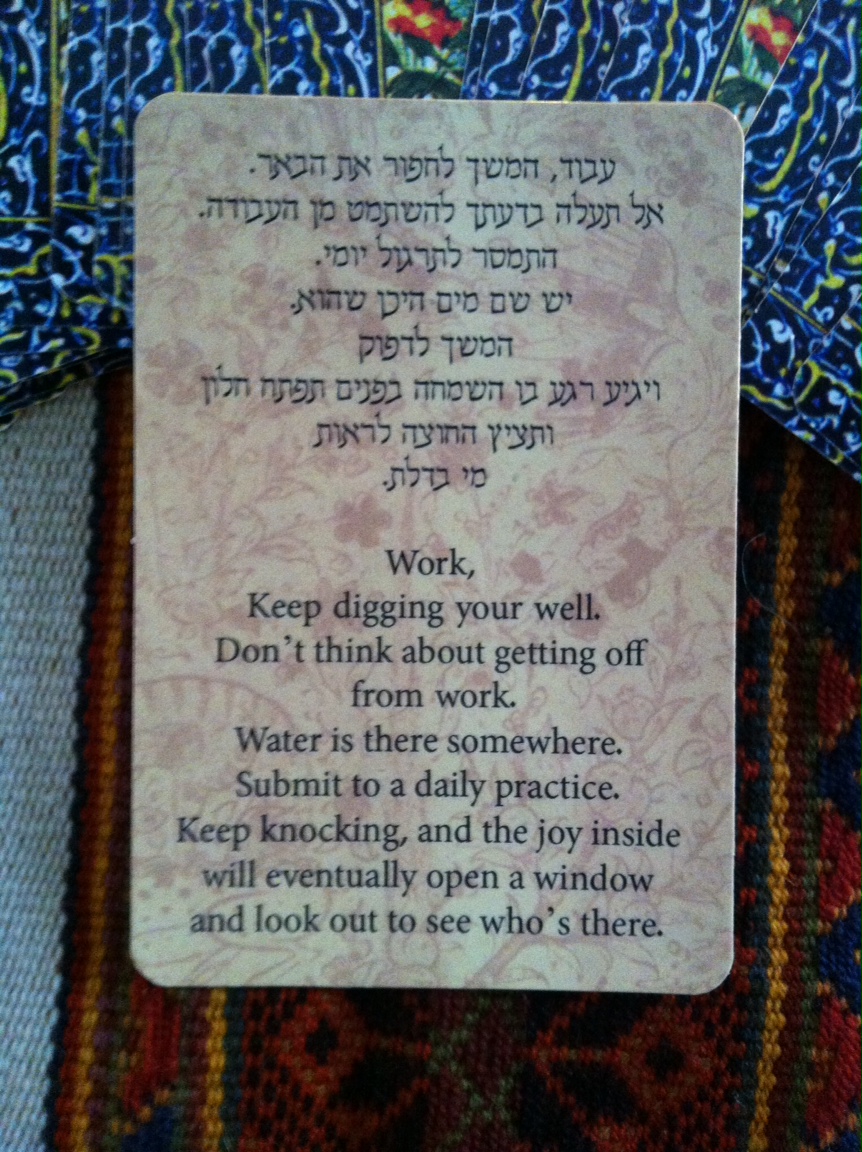 עבוד, המשך לחפור את הבאר.
אל תעלה בדעתך להשתמט מן העבודה.
התמסר לתרגול יומי.
יש שם מים היכן שהוא.
המשך לדפוק
ויגיע רגע בו השמחה בפנים תפתח חלון
ותציץ החוצה לראות
מי בדלת.
Work,
Keep digging your well.
Don’t think about getting off
from work.
Water is there somewhere.
Submit to a daily practice.
Keep knocking, and the joy inside
will eventually open a window
and look out to see who’s there.